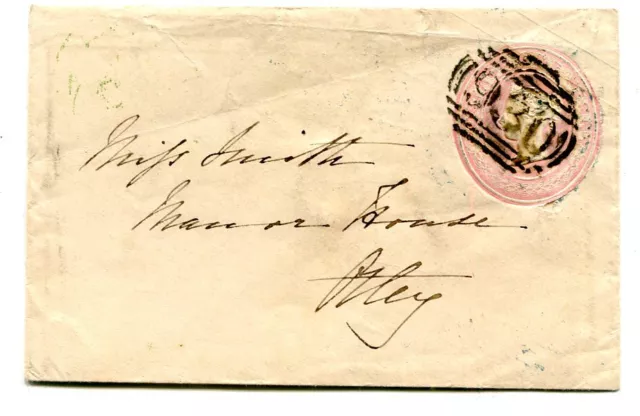 Miss Smith
Manor House
Otley